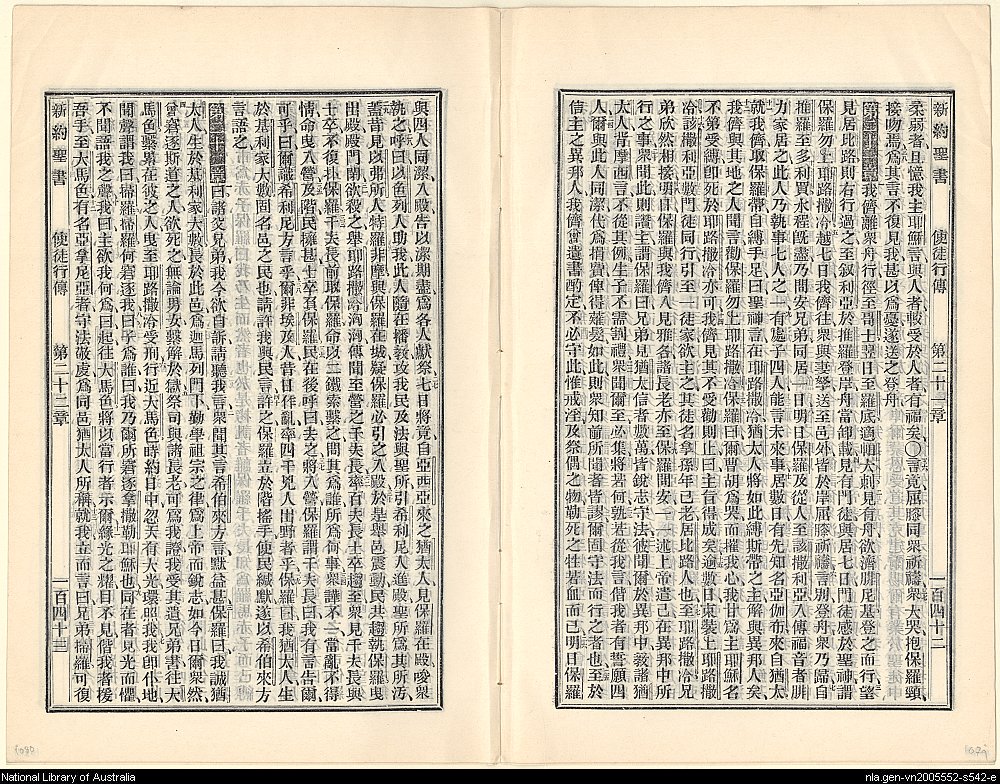 新約聖書 使徒行傳 第二十一章 一百四十二
柔弱者且憶我主耶穌言與人者較受於人者有福矣〇言竟屈膝同衆祈禱衆大哭抱保羅頸
接吻焉爲其言不復見我甚以爲憂遂送之登舟
第二十一章我儕離衆舟行徑至哥士翌日至羅底適帕大喇見有舟欲濟腓尼基登之而行望
見居比路則右行過之至叙利亞於推羅登岸舟當卸載見有門徒與居七日門徒感於聖神謂
保羅勿上耶路撒冷越七日我儕往衆與妻孥送至邑外皆於岸屈膝祈禱言別登舟衆乃歸自
推羅至多利買水程旣盡乃問安兄弟同居一日明日保羅及從人至該撒利亞入傳福音者腓
力家居之此人乃執事七人之一有處子四人能言未來事居數日有先知名亞伽布來自猶太
就我儕取保羅帶自縛手足曰聖神言在耶路撒冷猶太人將如此縛斯帶之主解與異邦人矣
我儕與其地之人聞言勸保羅勿上耶路撒冷保羅曰爾曹胡爲哭而摧我心我甘爲主耶穌名
不第受縛卽死於耶路撒冷亦可我儕見其不受勸則止曰主旨得成矣逾數日束裝上耶路撒
冷該撒利亞數門徒同行引至一徒家欲主之其徒名拿孫年已老居比路人也至耶路撒冷兄
弟欣然相接明日保羅與我儕入見雅各諸長老亦至保羅問安一一述上帝遣己在異邦中所
行之事衆聞此則讚主謂保羅曰兄弟見猶太信者數萬皆銳志守法彼聞爾在異邦中敎諸猶
太人背摩西言不從其例生子不需割禮衆聞爾至必集將若何孰若從我言偕我有誓願四
人爾與此人同潔代爲捐貲俾得薙髮如此則衆知前所聞者皆誤爾固守法而行之者也至於
信主之異邦人我儕曾遺書酌定不必守此惟戒淫及祭偶之物勒死之牲若血而已明日保羅
與四人同潔入殿告以潔期盡爲各人獻祭七日將竟自亞西亞來之猶太人見保羅在殿唆衆
執之呼曰以色列人助我此人隨在播敎攻我民及法與聖所引希利尼人進殿聖所爲其所汚
蓋昔見以弗所人特羅非摩與保羅在城疑保羅必引之入殿於是舉邑震動民共趨執保羅曳
出殿殿門閉欲殺之舉耶路撒冷洶洶傳聞至營之千夫長率百夫長士卒趨至衆見千夫長與
士卒不復扑保羅千夫長前取保羅命以二鐵索繫之問其爲誰所爲何事衆譁不一當亂不得
情命曳入營及階民擁甚士卒負保羅民在後呼曰去之將入營保羅謂千夫長曰我有言告爾
可乎曰爾識希利尼方言乎爾非埃及人昔日作亂率四千兇人出野者乎保羅曰我猶太人生
於基利家大數固名邑之民也請許我與民言許之保羅立於階搖手使民緘默遂以希伯來方
言語之
第二十二章曰諸父兄弟我今欲自訴請聽我言衆聞其言希伯來方言默益甚保羅曰我誠猶
太人生於基利家大數長於此邑爲迦馬列門下勤學祖宗之律爲上帝而銳志如今日爾衆然
曾窘逐斯道之人欲死之無論男女繫解於獄祭司與諸長老可爲我證我受其遺兄弟書往大
馬色繫累在彼之人曳至耶路撒冷受刑行近大馬色時約日中忽天有大光環照我我卽仆地
聞聲謂我曰掃羅掃羅何窘逐我曰主爲誰曰我乃爾所窘逐拿撒勒耶穌也同在者見光而懼
不聞語我之聲我曰主欲我何爲曰起往大馬色將以當行者示爾緣光之耀目不見偕我者援
吾手至大馬色有名亞拿尼亞者守法敬虔爲同邑猶太人所稱就我立而言曰兄弟掃羅可復
新約聖書 使徒行傳 第二十二章 一百四十三
National Library of Australia
nla.gen-vn2005552-s542-e